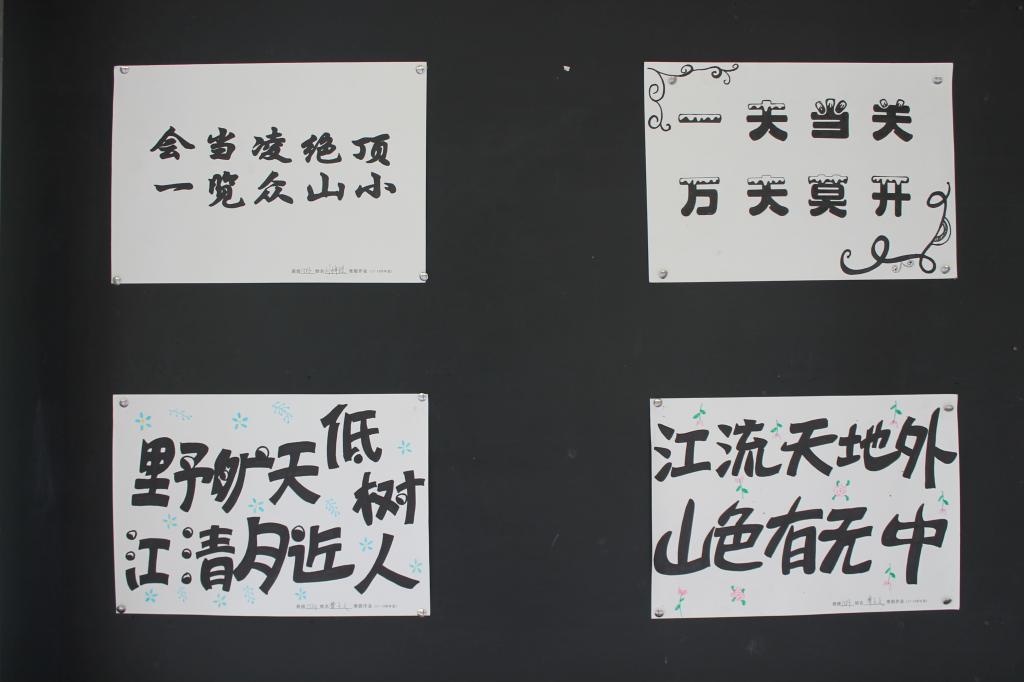 会当凌绝顶
一览众山小
一夫当关
万夫莫开
野旷天低树
江清月近人
江流天地外
山色有无中